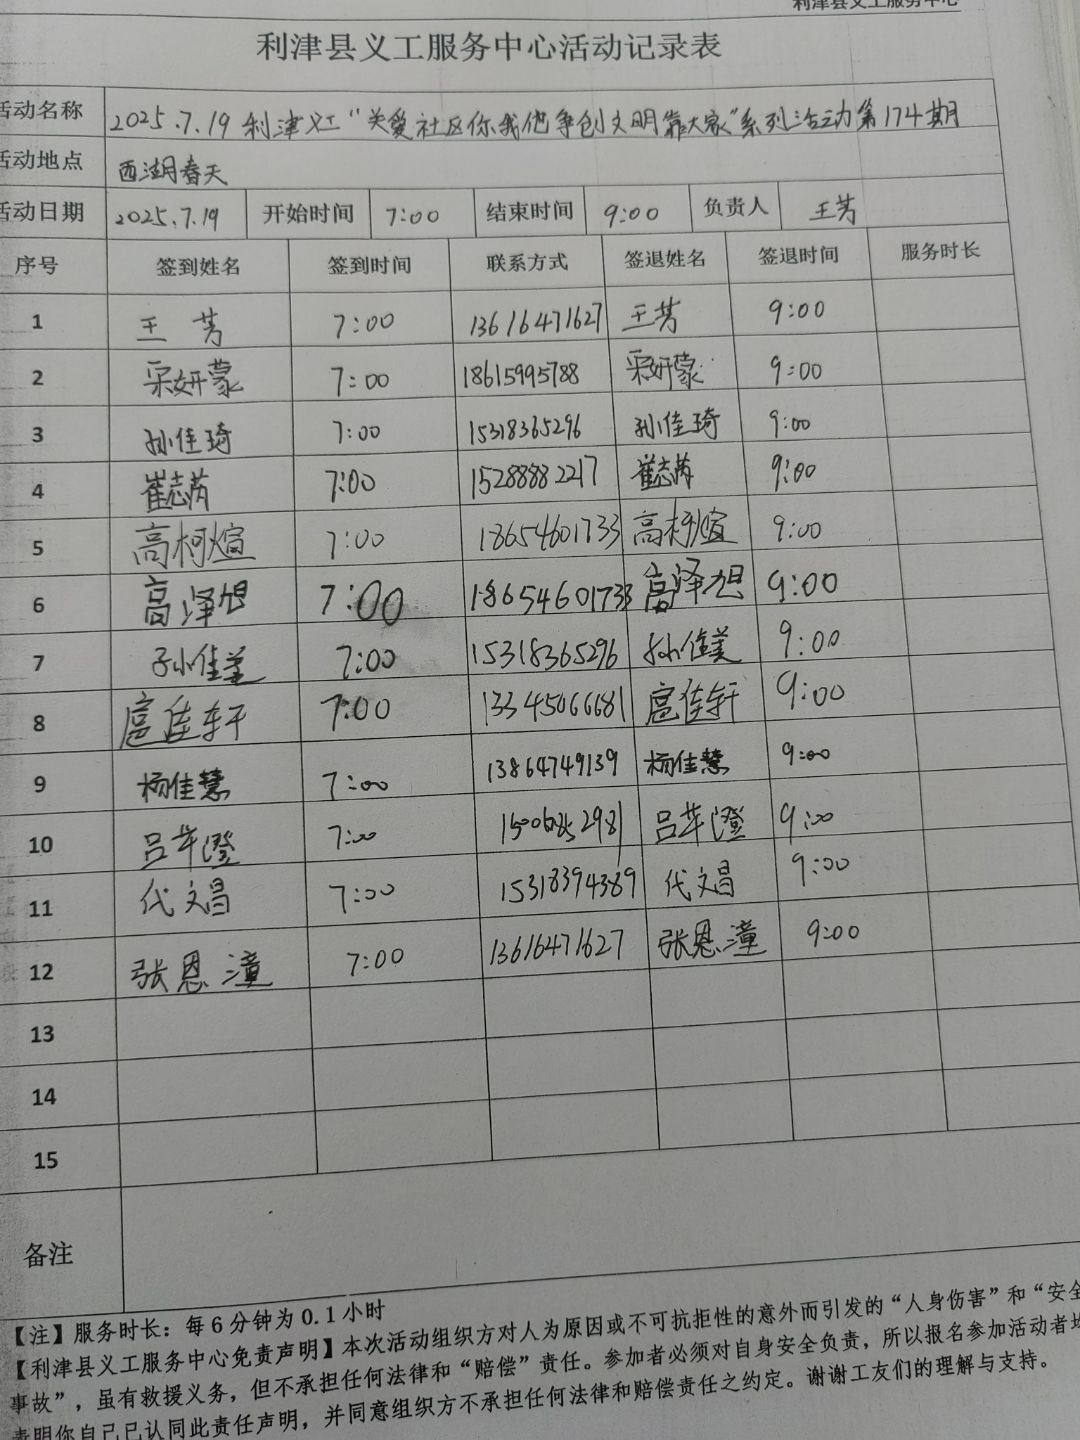 利津县义工服务中心
利津县义工服务中心活动记录表
活动名称 2025.7.19 利津义工“关爱社区你我他争创文明靠大家”系列活动第174期
活动地点 西湖春天
活动日期 2025.7.19 开始时间 7:00 结束时间 9:00 负责人 王芳
序号 签到姓名 签到时间 联系方式 签退姓名 签退时间 服务时长
1 王芳 7:00 13616471627 王芳 9:00
2 妍蒙 7:00 18615995788 妍蒙 9:00
3 孙佳琦 7:00 15318365296 孙佳琦 9:00
4 崔志芮 7:00 15288882217 崔志芮 9:00
5 高柯煊 7:00 18654601733 高柯煊 9:00
6 高泽旭 7:00 18654601733 高泽旭 9:00
7 孙佳美 7:00 15318365296 孙佳美 9:00
8 扈佳轩 7:00 13345066681 扈佳轩 9:00
9 杨佳慧 7:00 13864749139 杨佳慧 9:00
10 吕苹澄 7:00 9:00
11 代文昌 7:00 15318394389 代文昌 9:00
12 张恩潼 7:00 13616471627 张恩潼 9:00
13
14
15
备注
【注】服务时长：每6分钟为0.1小时
【利津县义工服务中心免责声明】本次活动组织方对人为原因或不可抗拒性的意外而引发的“人身伤害”和“安全
事故”，虽有救援义务，但不承担任何法律和“赔偿”责任。参加者必须对自身安全负责，所以报名参加活动者均
表明你自己已认同此责任声明，并同意组织方不承担任何法律和赔偿责任之约定。谢谢工友们的理解与支持。